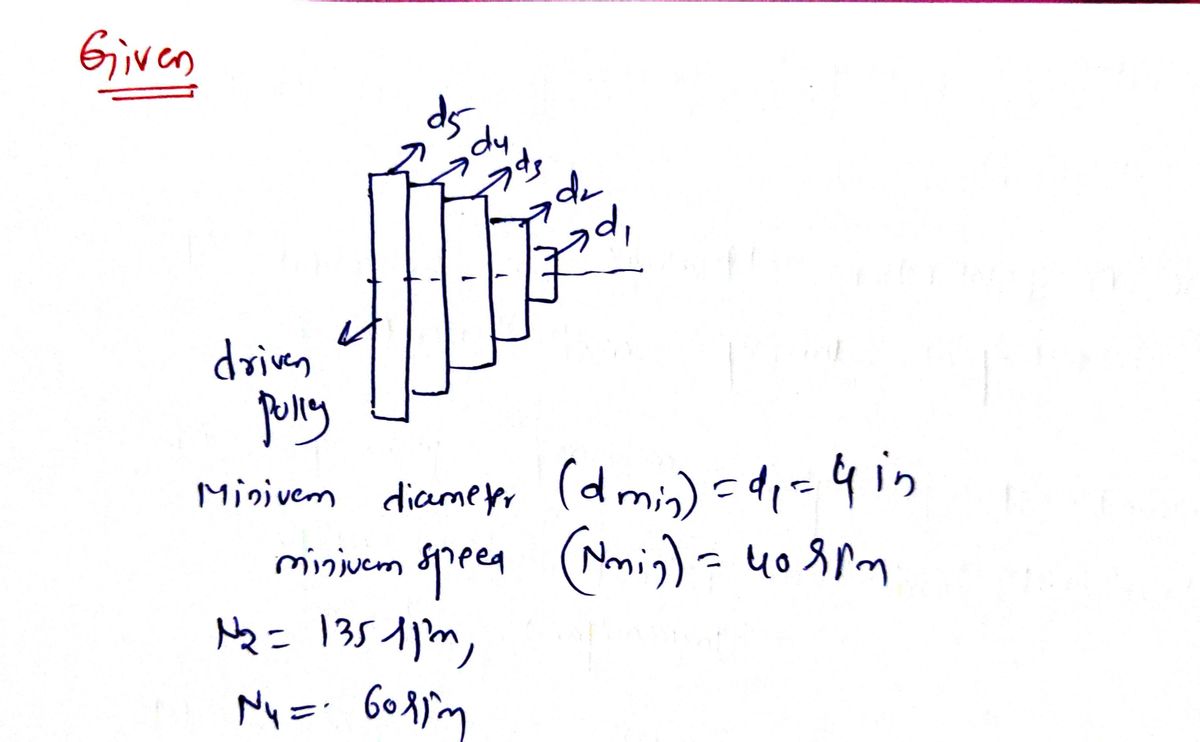 Given
d5
d4
d3
d2
d1
driven
pully
Minivem diameter (d min) = d1 = 4 in
minivem speed (Nmin) = 40 rpm
N2 = 135 rpm,
N4 = 60 rpm